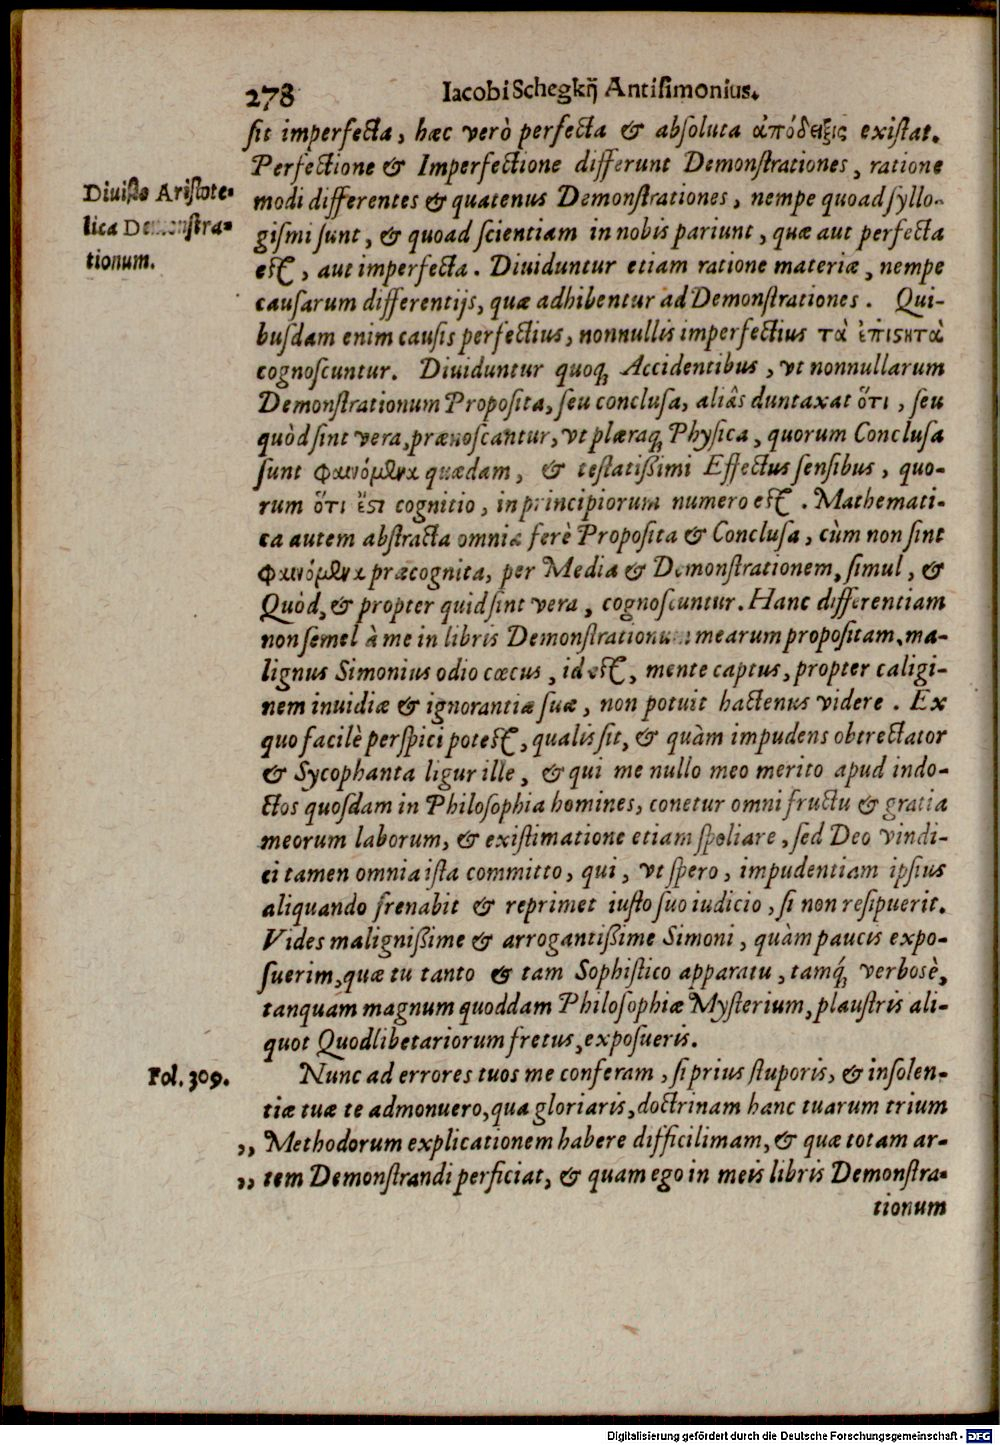 278 Iacobi Schegkij Antisimonius.
sit imperfecta, hæc verò perfecta & absoluta ἀπόδειξις existat.
Perfectione & Imperfectione differunt Demonstrationes, ratione
Diuisio Aristote-
modi differentes & quatenus Demonstrationes, nempe quoad syllo-
lica Demonstra-
gismi sunt, & quoad scientiam in nobis pariunt, quæ aut perfecta
tionum.
est, aut imperfecta. Diuiduntur etiam ratione materiæ, nempe
causarum differentijs, quæ adhibentur ad Demonstrationes. Qui-
busdam enim causis perfectius, nonnullis imperfectius τὰ ἐπιςητὰ
cognoscuntur. Diuiduntur quoq; Accidentibus, vt nonnullarum
Demonstrationum Proposita, seu conclusa, aliâs duntaxat ὅτι, seu
quòd sint vera, prænoscantur, vt plæraq; Physica, quorum Conclusa
sunt φαινόμενα quædam, & testatißimi Effectus sensibus, quo-
rum ὅτι ἔςι cognitio, in principiorum numero est. Mathemati-
ca autem abstracta omnia ferè Proposita & Conclusa, cùm non sint
φαινόμενα præcognita, per Media & Demonstrationem, simul, &
Quòd, & propter quid sint vera, cognoscuntur. Hanc differentiam
non semel à me in libris Demonstrationum mearum propositam, ma-
lignus Simonius odio cæcus, id est, mente captus, propter caligi-
nem inuidiæ & ignorantiæ suæ, non potuit hactenus videre. Ex
quo facilè perspici potest, qualis sit, & quàm impudens obtrectator
& Sycophanta ligur ille, & qui me nullo meo merito apud indo-
ctos quosdam in Philosophia homines, conetur omni fructu & gratia
meorum laborum, & existimatione etiam spoliare, sed Deo vindi-
ci tamen omnia ista committo, qui, vt spero, impudentiam ipsius
aliquando frenabit & reprimet iusto suo iudicio, si non resipuerit.
Vides malignißime & arrogantißime Simoni, quàm paucis expo-
suerim, quæ tu tanto & tam Sophistico apparatu, tamq́; verbosè,
tanquam magnum quoddam Philosophiæ Mysterium, plaustris ali-
quot Quodlibetariorum fretus, exposueris.
Fol. 309. Nunc ad errores tuos me conferam, si prius stuporis, & insolen-
tiæ tuæ te admonuero, qua gloriaris, doctrinam hanc tuarum trium
,, Methodorum explicationem habere difficilimam, & quæ totam ar-
,, tem Demonstrandi perficiat, & quam ego in meis libris Demonstra-
tionum
Digitalisierung gefördert durch die Deutsche Forschungsgemeinschaft - DFG